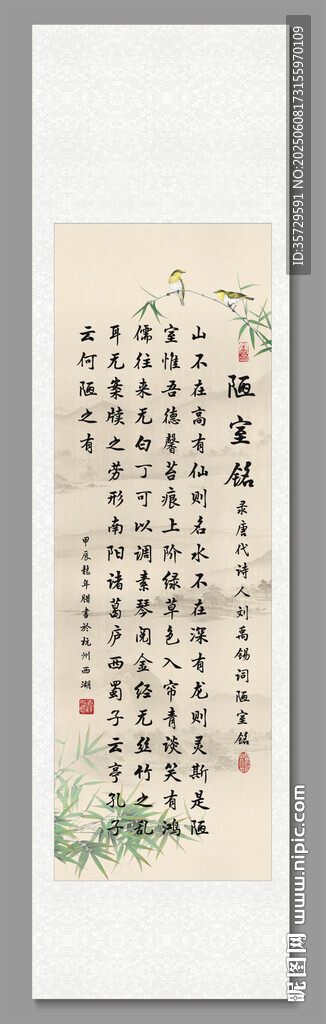 陋室铭
录唐代诗人刘禹锡词陋室铭
山不在高有仙则名水不在深有龙则灵斯是陋
室惟吾德馨苔痕上阶绿草色入帘青谈笑有鸿
儒往来无白丁可以调素琴阅金经无丝竹之乱
耳无案牍之劳形南阳诸葛庐西蜀子云亭孔子
云何陋之有
甲辰龙年腊书於杭州西湖
ID:35729591 NO:20250608173155970109
昵图网 www.nipic.com